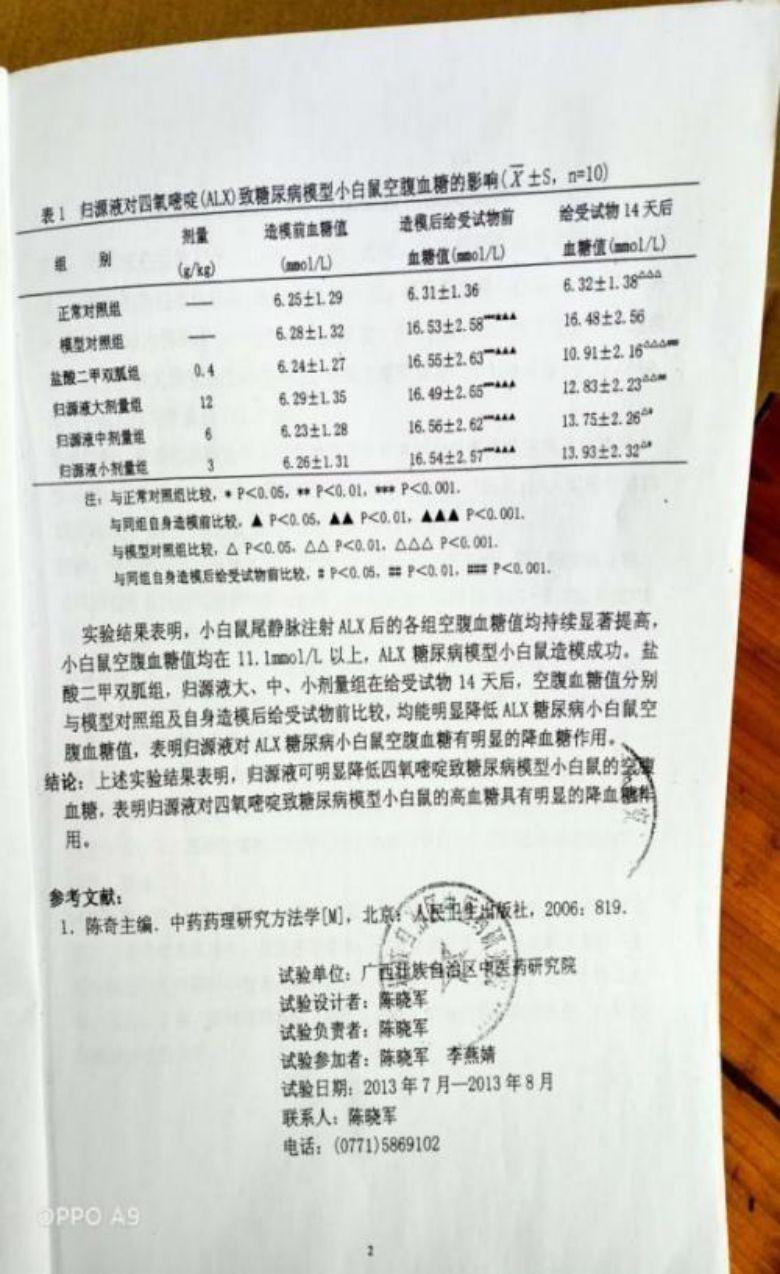 表1 归源液对四氧嘧啶(ALX)致糖尿病模型小白鼠空腹血糖的影响(X̄±S, n=10)
组 别 剂量 (g/kg) 造模前血糖值 (mmol/L) 造模后给受试物前 血糖值(mmol/L) 给受试物14天后 血糖值(mmol/L)
正常对照组 —— 6.25±1.29 6.31±1.36 6.32±1.38△△△
模型对照组 —— 6.28±1.32 16.53±2.58***▲▲▲ 16.48±2.56
盐酸二甲双胍组 0.4 6.24±1.27 16.55±2.63***▲▲▲ 10.91±2.16△△△###
归源液大剂量组 12 6.29±1.35 16.49±2.65***▲▲▲ 12.83±2.23△△##
归源液中剂量组 6 6.23±1.28 16.56±2.62***▲▲▲ 13.75±2.26△#
归源液小剂量组 3 6.26±1.31 16.54±2.57***▲▲▲ 13.93±2.32△#
注:与正常对照组比较,* P<0.05, ** P<0.01, *** P<0.001.
与同组自身造模前比较,▲ P<0.05, ▲▲ P<0.01, ▲▲▲ P<0.001.
与模型对照组比较,△ P<0.05, △△ P<0.01, △△△ P<0.001.
与同组自身造模后给受试物前比较,# P<0.05, ## P<0.01, ### P<0.001.
实验结果表明,小白鼠尾静脉注射ALX后的各组空腹血糖值均持续显著提高,
小白鼠空腹血糖值均在11.1mmol/L以上,ALX糖尿病模型小白鼠造模成功。盐
酸二甲双胍组,归源液大、中、小剂量组在给受试物14天后,空腹血糖值分别
与模型对照组及自身造模后给受试物前比较,均能明显降低ALX糖尿病小白鼠空
腹血糖值,表明归源液对ALX糖尿病小白鼠空腹血糖有明显的降血糖作用。
结论:上述实验结果表明,归源液可明显降低四氧嘧啶致糖尿病模型小白鼠的空腹
血糖,表明归源液对四氧嘧啶致糖尿病模型小白鼠的高血糖具有明显的降血糖作
用。
参考文献:
1. 陈奇主编. 中药药理研究方法学[M], 北京: 人民卫生出版社, 2006: 819.
试验单位:广西壮族自治区中医药研究院
试验设计者:陈晓军
试验负责者:陈晓军
试验参加者:陈晓军 李燕婧
试验日期:2013年7月—2013年8月
联系人:陈晓军
电话:(0771)5869102
OPPO A9
2